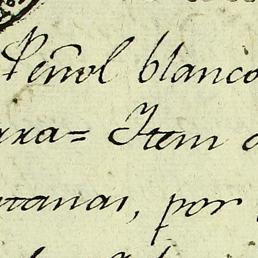 Peñol blanco
rra= Item
tanas, por